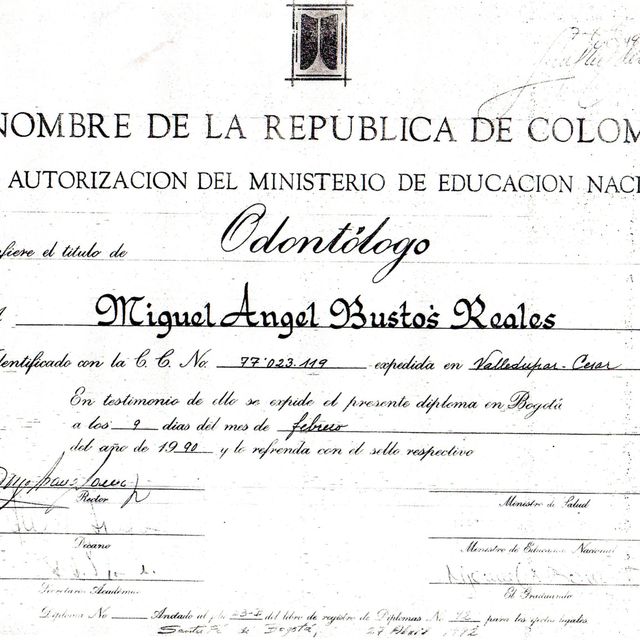 NOMBRE DE LA REPUBLICA DE COLOM
AUTORIZACION DEL MINISTERIO DE EDUCACION NACI
fiere el titulo de Odontólogo
Miguel Angel Bustos Reales
dentificado con la C. C. No. 77'023.119 expedida en Valledupar - Cesar
En testimonio de ello se expide el presente diploma en Bogotá
a los 9 dias del mes de febrero
del año de 1990 y lo refrenda con el sello respectivo
Rector
Ministro de Salud
Decano
Ministro de Educación Nacional
Secretario Académico
El Graduando
Diploma No Anotado al folio 23-I del libro de registro de Diplomas No 12 para los efectos legales
Bogotá, 27 Abril